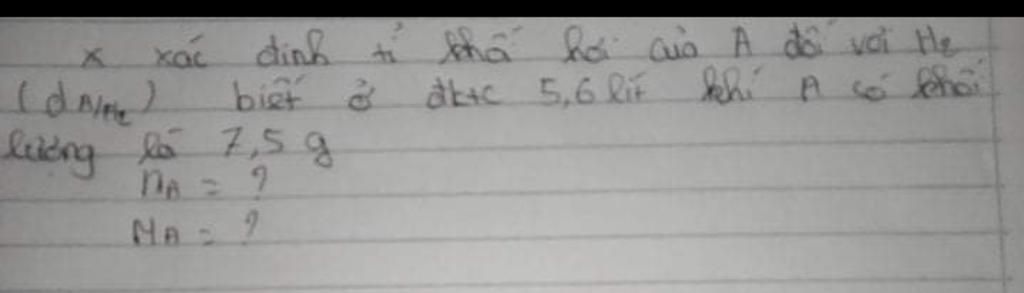 x xác định tỉ khối hơi của A đối với H2
(dA/H2) biết ở đktc 5,6 lít khí A có khối
lượng là 7,5 g
nA = ?
MA = ?